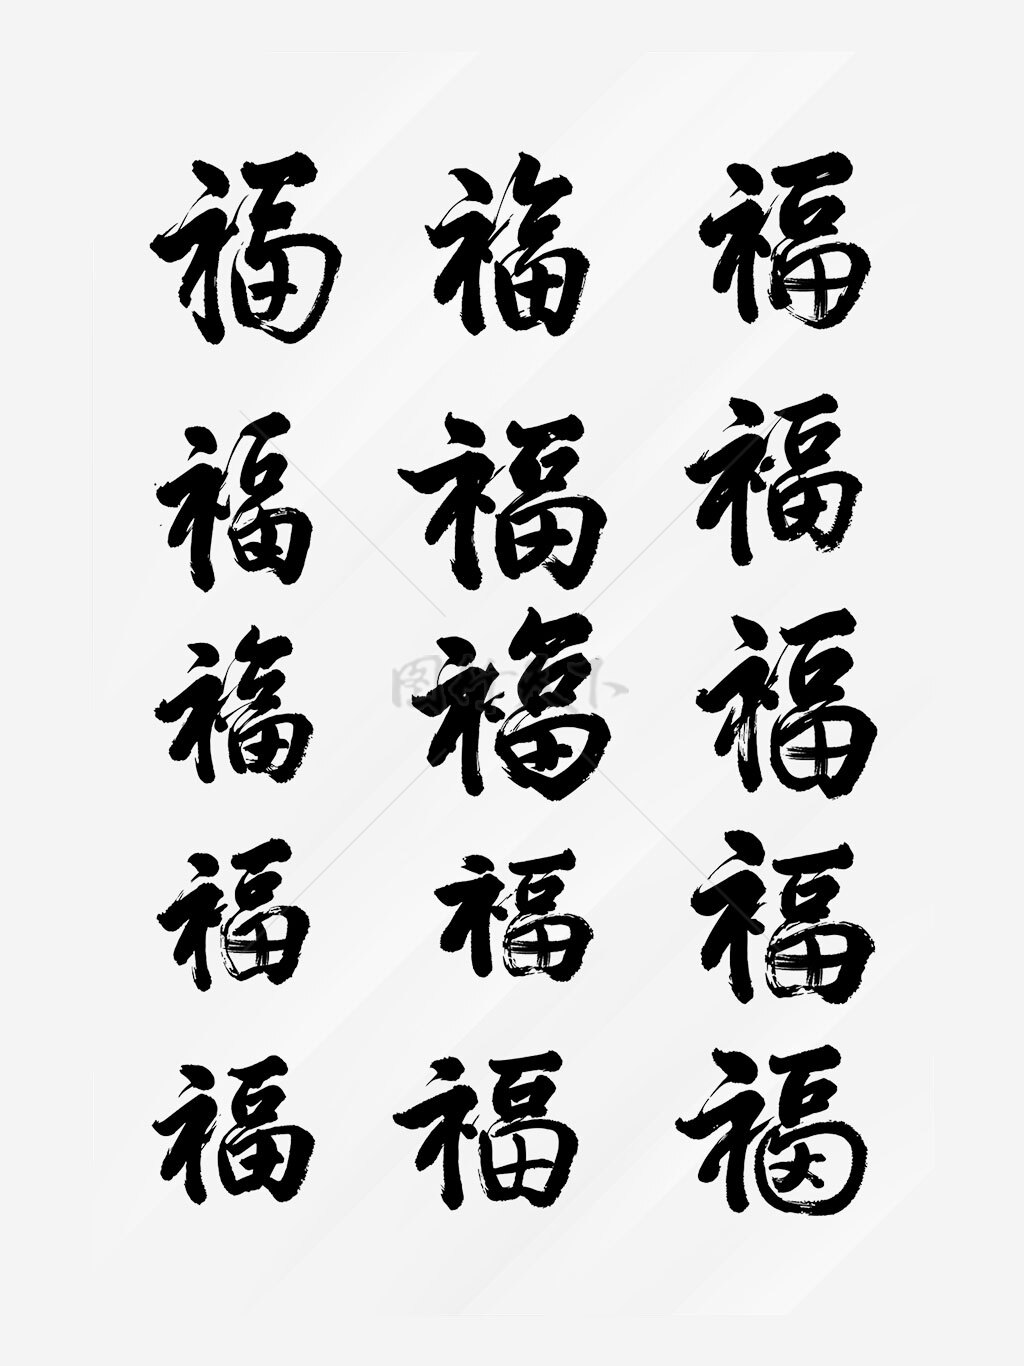 福 福 福
福 福 福
福 福 福
福 福 福
福 福 福